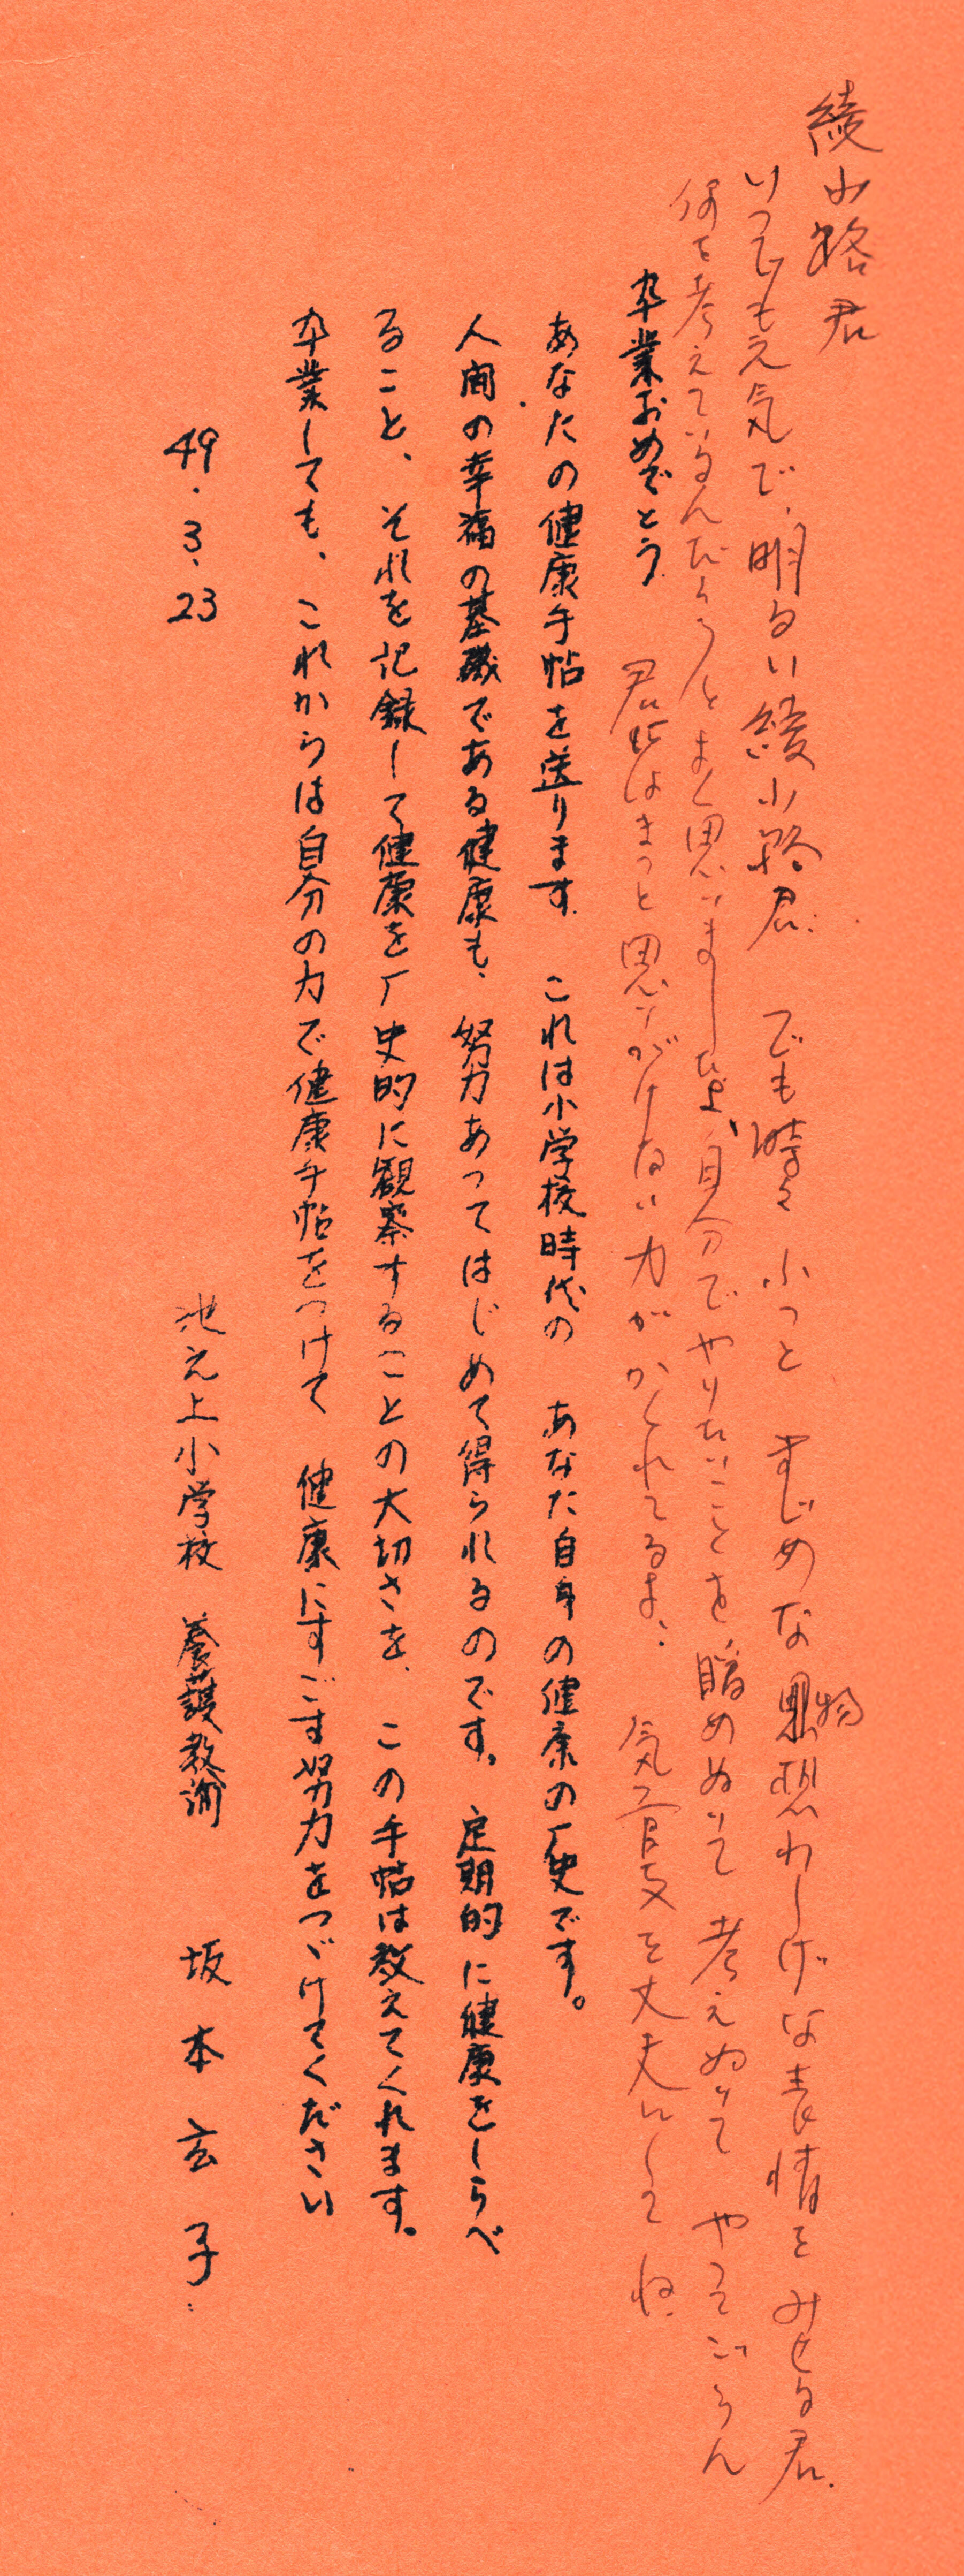 綾小路君
いつでも元気で、明るい綾小路君. でも時々 ふっと まじめな物想わしげな表情をみせる君.
何を考えているんだろうとよく思いましたが、自分でやりたいことを 暖めぬいて 考えぬいて やってごらん
卒業おめでとう. 君にはきっと思いがけない力がかくれてるよ. 気管支を丈夫にしてね.
あなたの健康手帖を送ります. これは小学校時代の あなた自身の健康の歴史です。
人間の幸福の基礎である健康も、努力あってはじめて得られるのです。定期的に健康をしらべ
ること、それを記録して健康を歴史的に観察することの大切さを、この手帖は教えてくれます。
卒業しても、これからは自分の力で健康手帖をつけて 健康にすごす努力をつづけてください
49.3.23
池之上小学校 養護教諭 坂本玄子